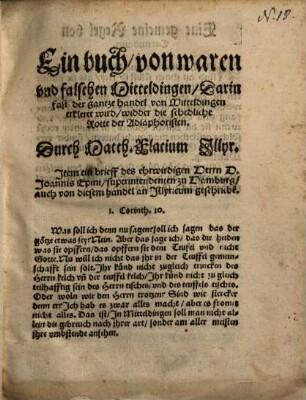 N. 18.
Ein buch/ von waren
vnd falschen Mitteldingen/ Darin
fast der gantze handel von Mitteldingen
erkleret wird/ widder die schedliche
Rotte der Adiaphoristen.
Durch Matth. Flacium Illyr.
Item ein brieff des ehrwirdigen Herrn D.
Joannis Epini/ superintendenten zu Hamburg/
auch von diesem handel an Illyricum geschriebē.
1. Corinth. 10.
Was soll ich denn nu sagen: soll ich sagen das der
götze etwas sey: Nein. Aber das sage ich/ das die heiden
was sie opffern/ das opffern sie dem Teufel vnd nicht
Gotte. Nu will ich nicht das ihr in der Teuffel gemeinschafft
sein solt. Ihr künd nicht zugleich trincken des
Herrn kelch vñ der teuffel kelch/ Ihr künd nicht zu gleich
teilhafftig sein des Herrn tisches/ vnd des teuffels tisches.
Oder woln wir den Herrn trotzen: Sind wir stercker
denn er: Ich hab es zwar alles macht/ aber es fromet
nicht alles. Das ist/ In Mitteldingen soll man nicht als
lein die gebreuch nach ihrer art/ sonder am aller meisten
ihre vmbstende ansehen.